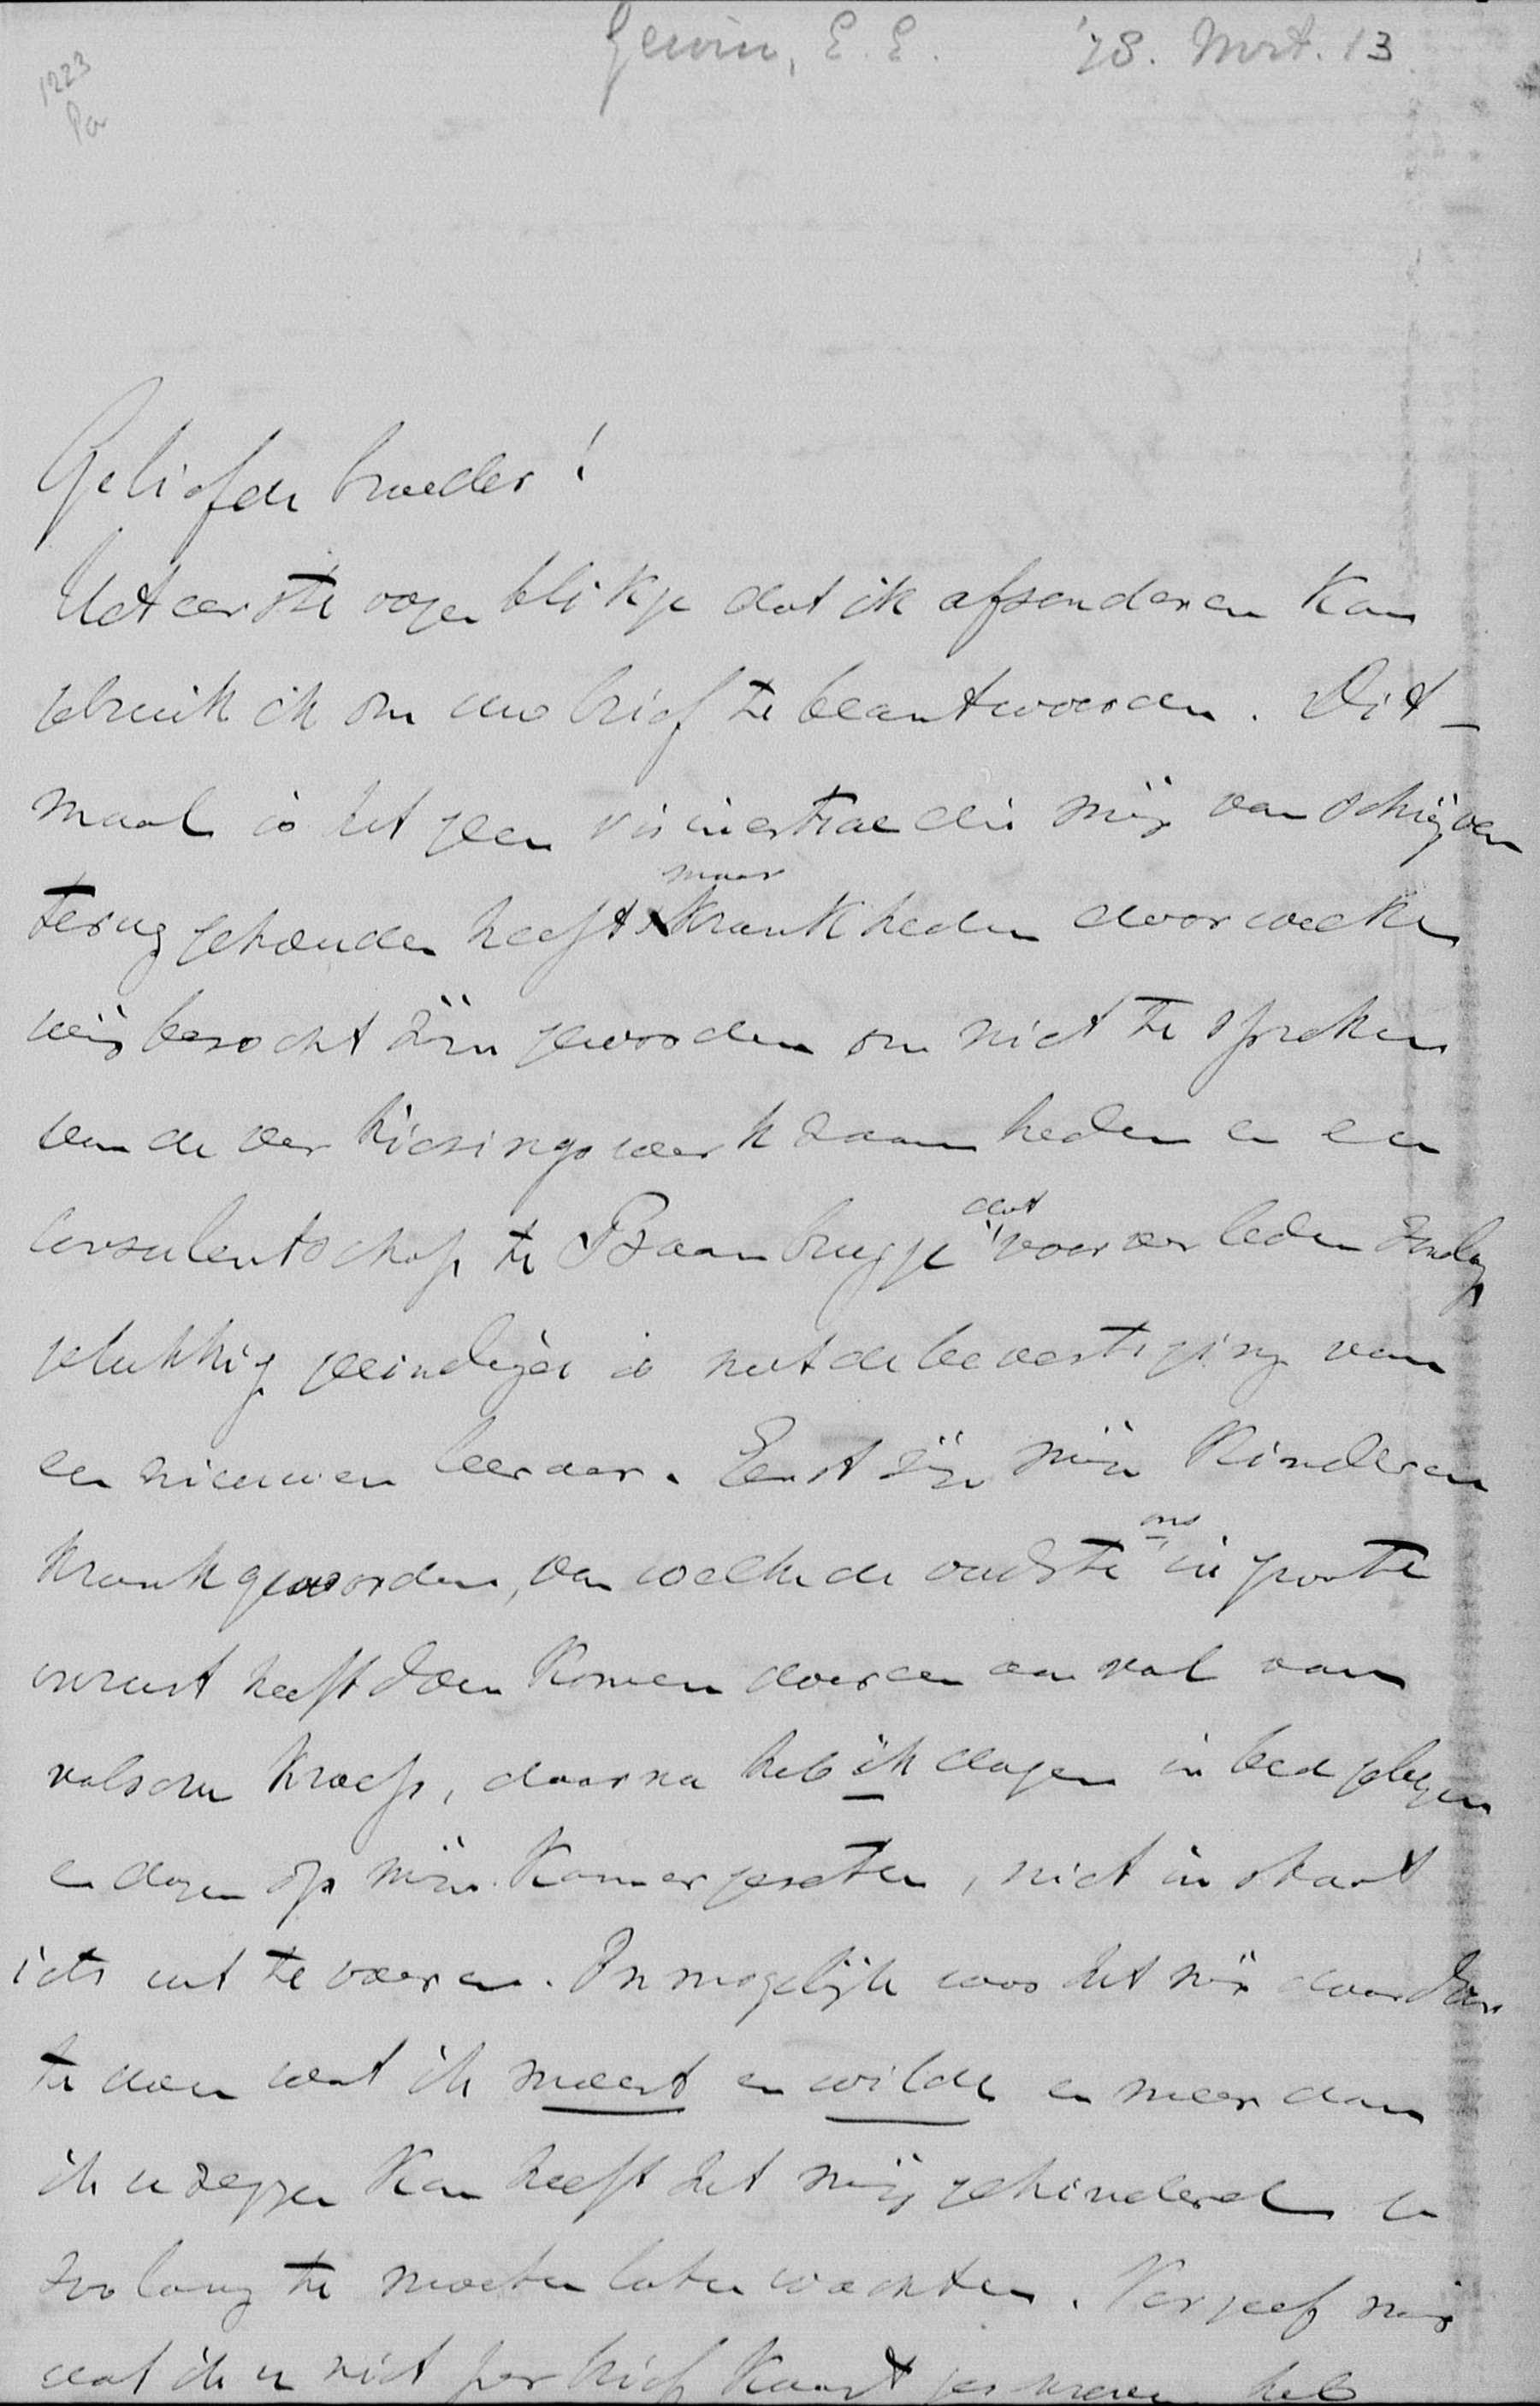 Gewin, E. E. '78. Mrt. 13
1223
Pa
Geliefde broeder!
Het eerste oogenblikje dat ik afzonderen kan
gebruik ik om uw brief te beantwoorden. Dit-
maal is het geen vis inertiae die mij van schrijven
teruggehouden heeft maar krankheden door welke
wij bezocht zijn geworden om niet te spreken
van de verkiesingswerkzaamheden en een
Consulentschap te Baambrugge dat voorverleden Zondag
gelukkig geeindigd is met de bevestiging van
een nieuwen leeraar. Eerst zijn mijn kinderen
krank geworden, van welke de oudste ons in groote
onrust heeft doen komen door een aanval van
valschen kroep, daarna heb ik dagen in bed gelegen
en dagen op mijn kamer gezeten, niet in staat
iets uit te voeren. Onmogelijk was het mij daardoor
te doen wat ik moest en wilde en meer dan
ik u zeggen kan heeft het mij gehinderd u
zoo lang te moeten laten wachten. Vergeef mij
dat ik u niet per briefkaart geschreven heb